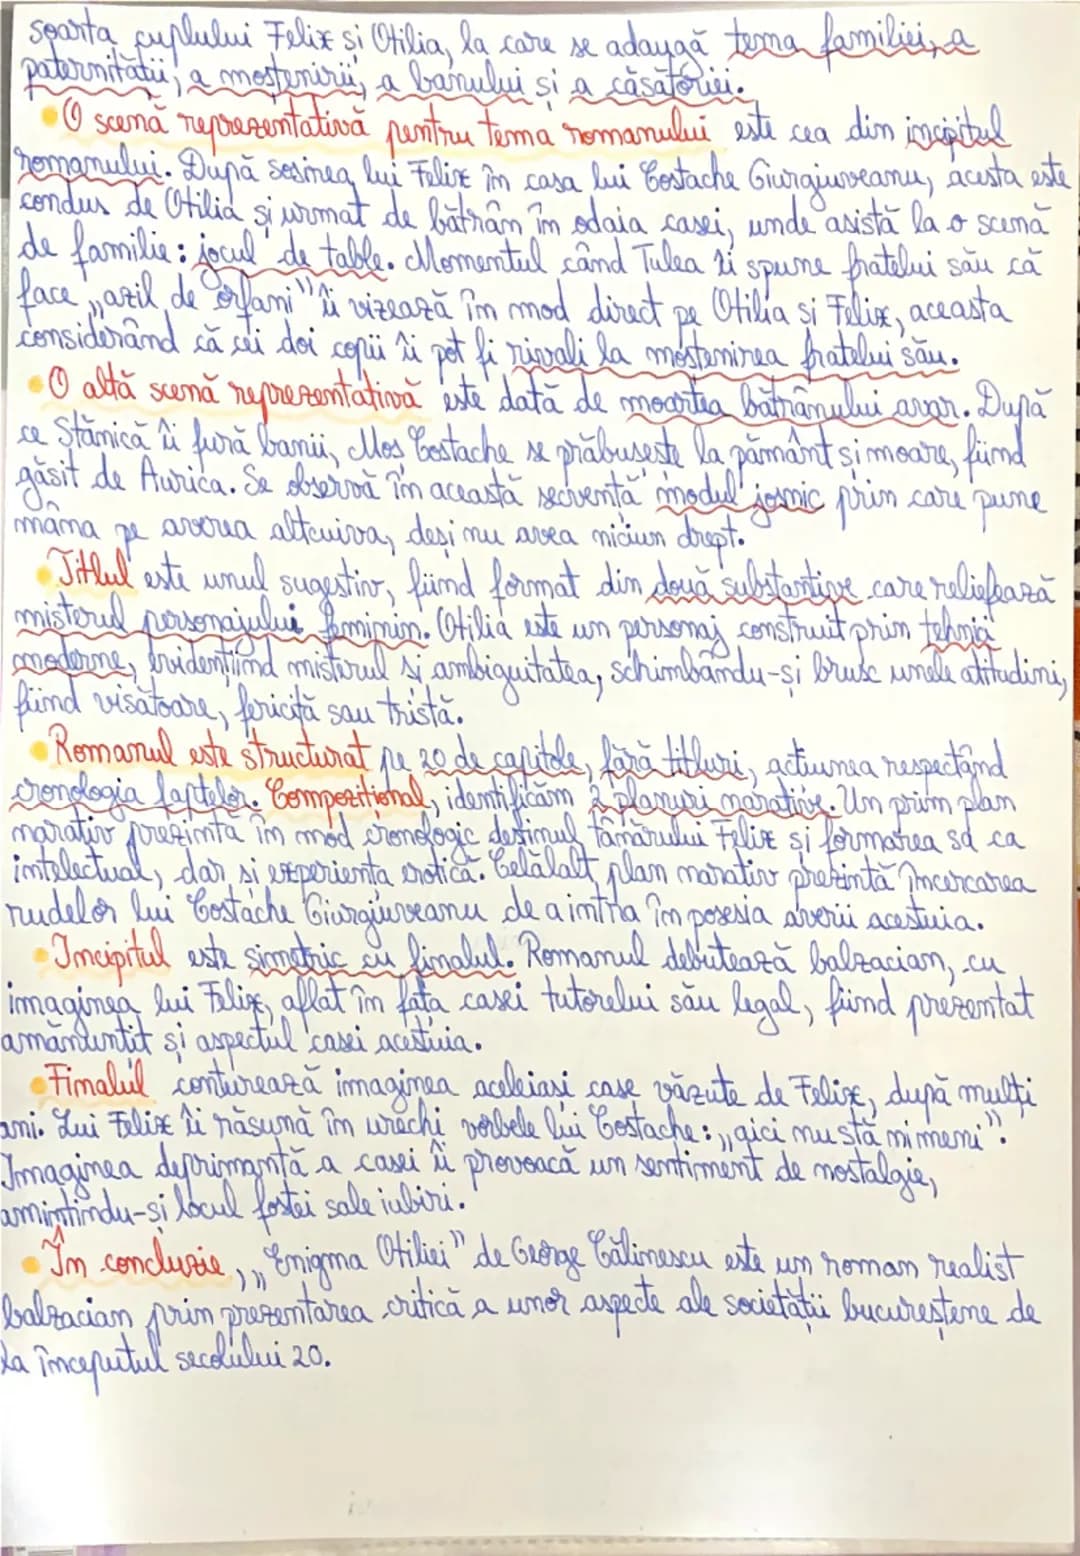 soarta cuplului Felix și Otilia, la care se adaugă tema familiei, a
paternității, a moștenirii, a banului și a căsătoriei.
O scenă reprezentativă pentru tema romanului este cea din incipitul
romanului. După sosirea lui Felix în casa lui Costache Giurgiuveanu, acesta este
condus de Otilia și urmat de bătrân în odaia casei, unde asistă la o scenă
de familie: jocul de table. Momentul când Tulea îi spune fratelui său că
face „azil de orfani" îi vizează în mod direct pe Otilia și Felix, aceasta
considerând că cei doi copii îi pot fi rivali la moștenirea fratelui său.
O altă scenă reprezentativă este dată de moartea bătrânului avar. După
ce Stănică îi fură banii, Moș Costache se prăbușește la pământ și moare, fiind
găsit de Aurica. Se observă în această secvență modul josnic prin care pune
mâna pe averea altcuiva, deși nu avea niciun drept.
Titlul este unul sugestiv, fiind format din două substantive care reliefează
misterul personajului feminin. Otilia este un personaj construit prin tehnici
moderne, evidențiind misterul și ambiguitatea, schimbându-și brusc unele atitudini,
fiind visătoare, fericită sau tristă.
Romanul este structurat pe 20 de capitole, fără titluri, acțiunea respectând
cronologia faptelor. Compozițional, identificăm 2 planuri narative. Un prim plan
narativ prezintă în mod cronologic destinul tânărului Felix și formarea sa ca
intelectual, dar și experiența erotică. Celălalt plan narativ prezintă încercarea
rudelor lui Costache Giurgiuveanu de a intra în posesia averii acestuia.
Incipitul este simetric cu finalul. Romanul debutează balzacian, cu
imaginea lui Felix, aflat în fața casei tutorelui său legal, fiind prezentat
amănunțit și aspectul casei acestuia.
Finalul conturează imaginea aceleiași case văzute de Felix, după mulți
ani. Lui Felix îi răsună în urechi vorbele lui Costache: „aici nu stă nimeni".
Imaginea deprimantă a casei îi provoacă un sentiment de nostalgie,
amintindu-și locul fostei sale iubiri.
În concluzie, „Enigma Otiliei" de George Călinescu este un roman realist
balzacian prin prezentarea critică a unor aspecte ale societății bucureștene de
la începutul secolului 20.